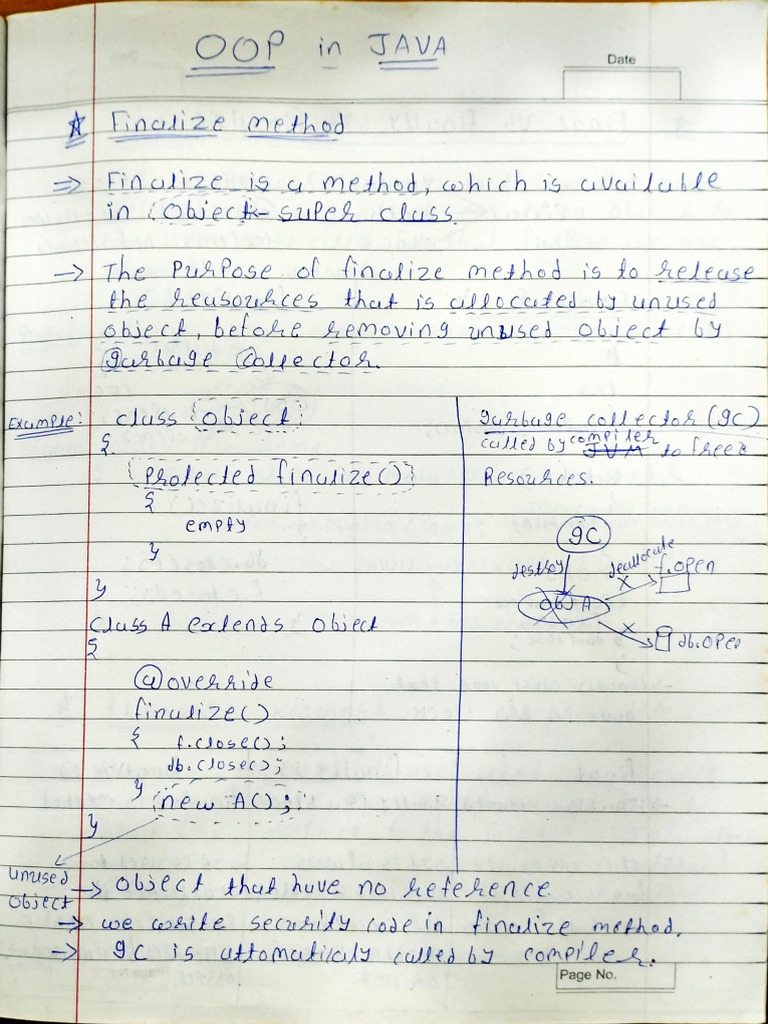 OOP in JAVA
Date
Finalize method
=> Finalize is a method, which is available
in Object - super class.
-> The purpose of finalize method is to release
the reusources that is allocated by unused
object, before removing unused object by
garbage Collector.
Example: class Object
{
Protected finalize()
{
empty
}
}
class A extends Object
{
@override
finalize()
{ f.close();
db.close();
}
new A();
}
garbage collector (gc)
called by compiler JVM to free
Resources.
gc
destroy
deallocate
f.open
obj A
x
x
db.open
unused
object
-> object that have no reference
-> we write security code in finalize method.
-> gc is auttomatically called by compiler.
Page No.